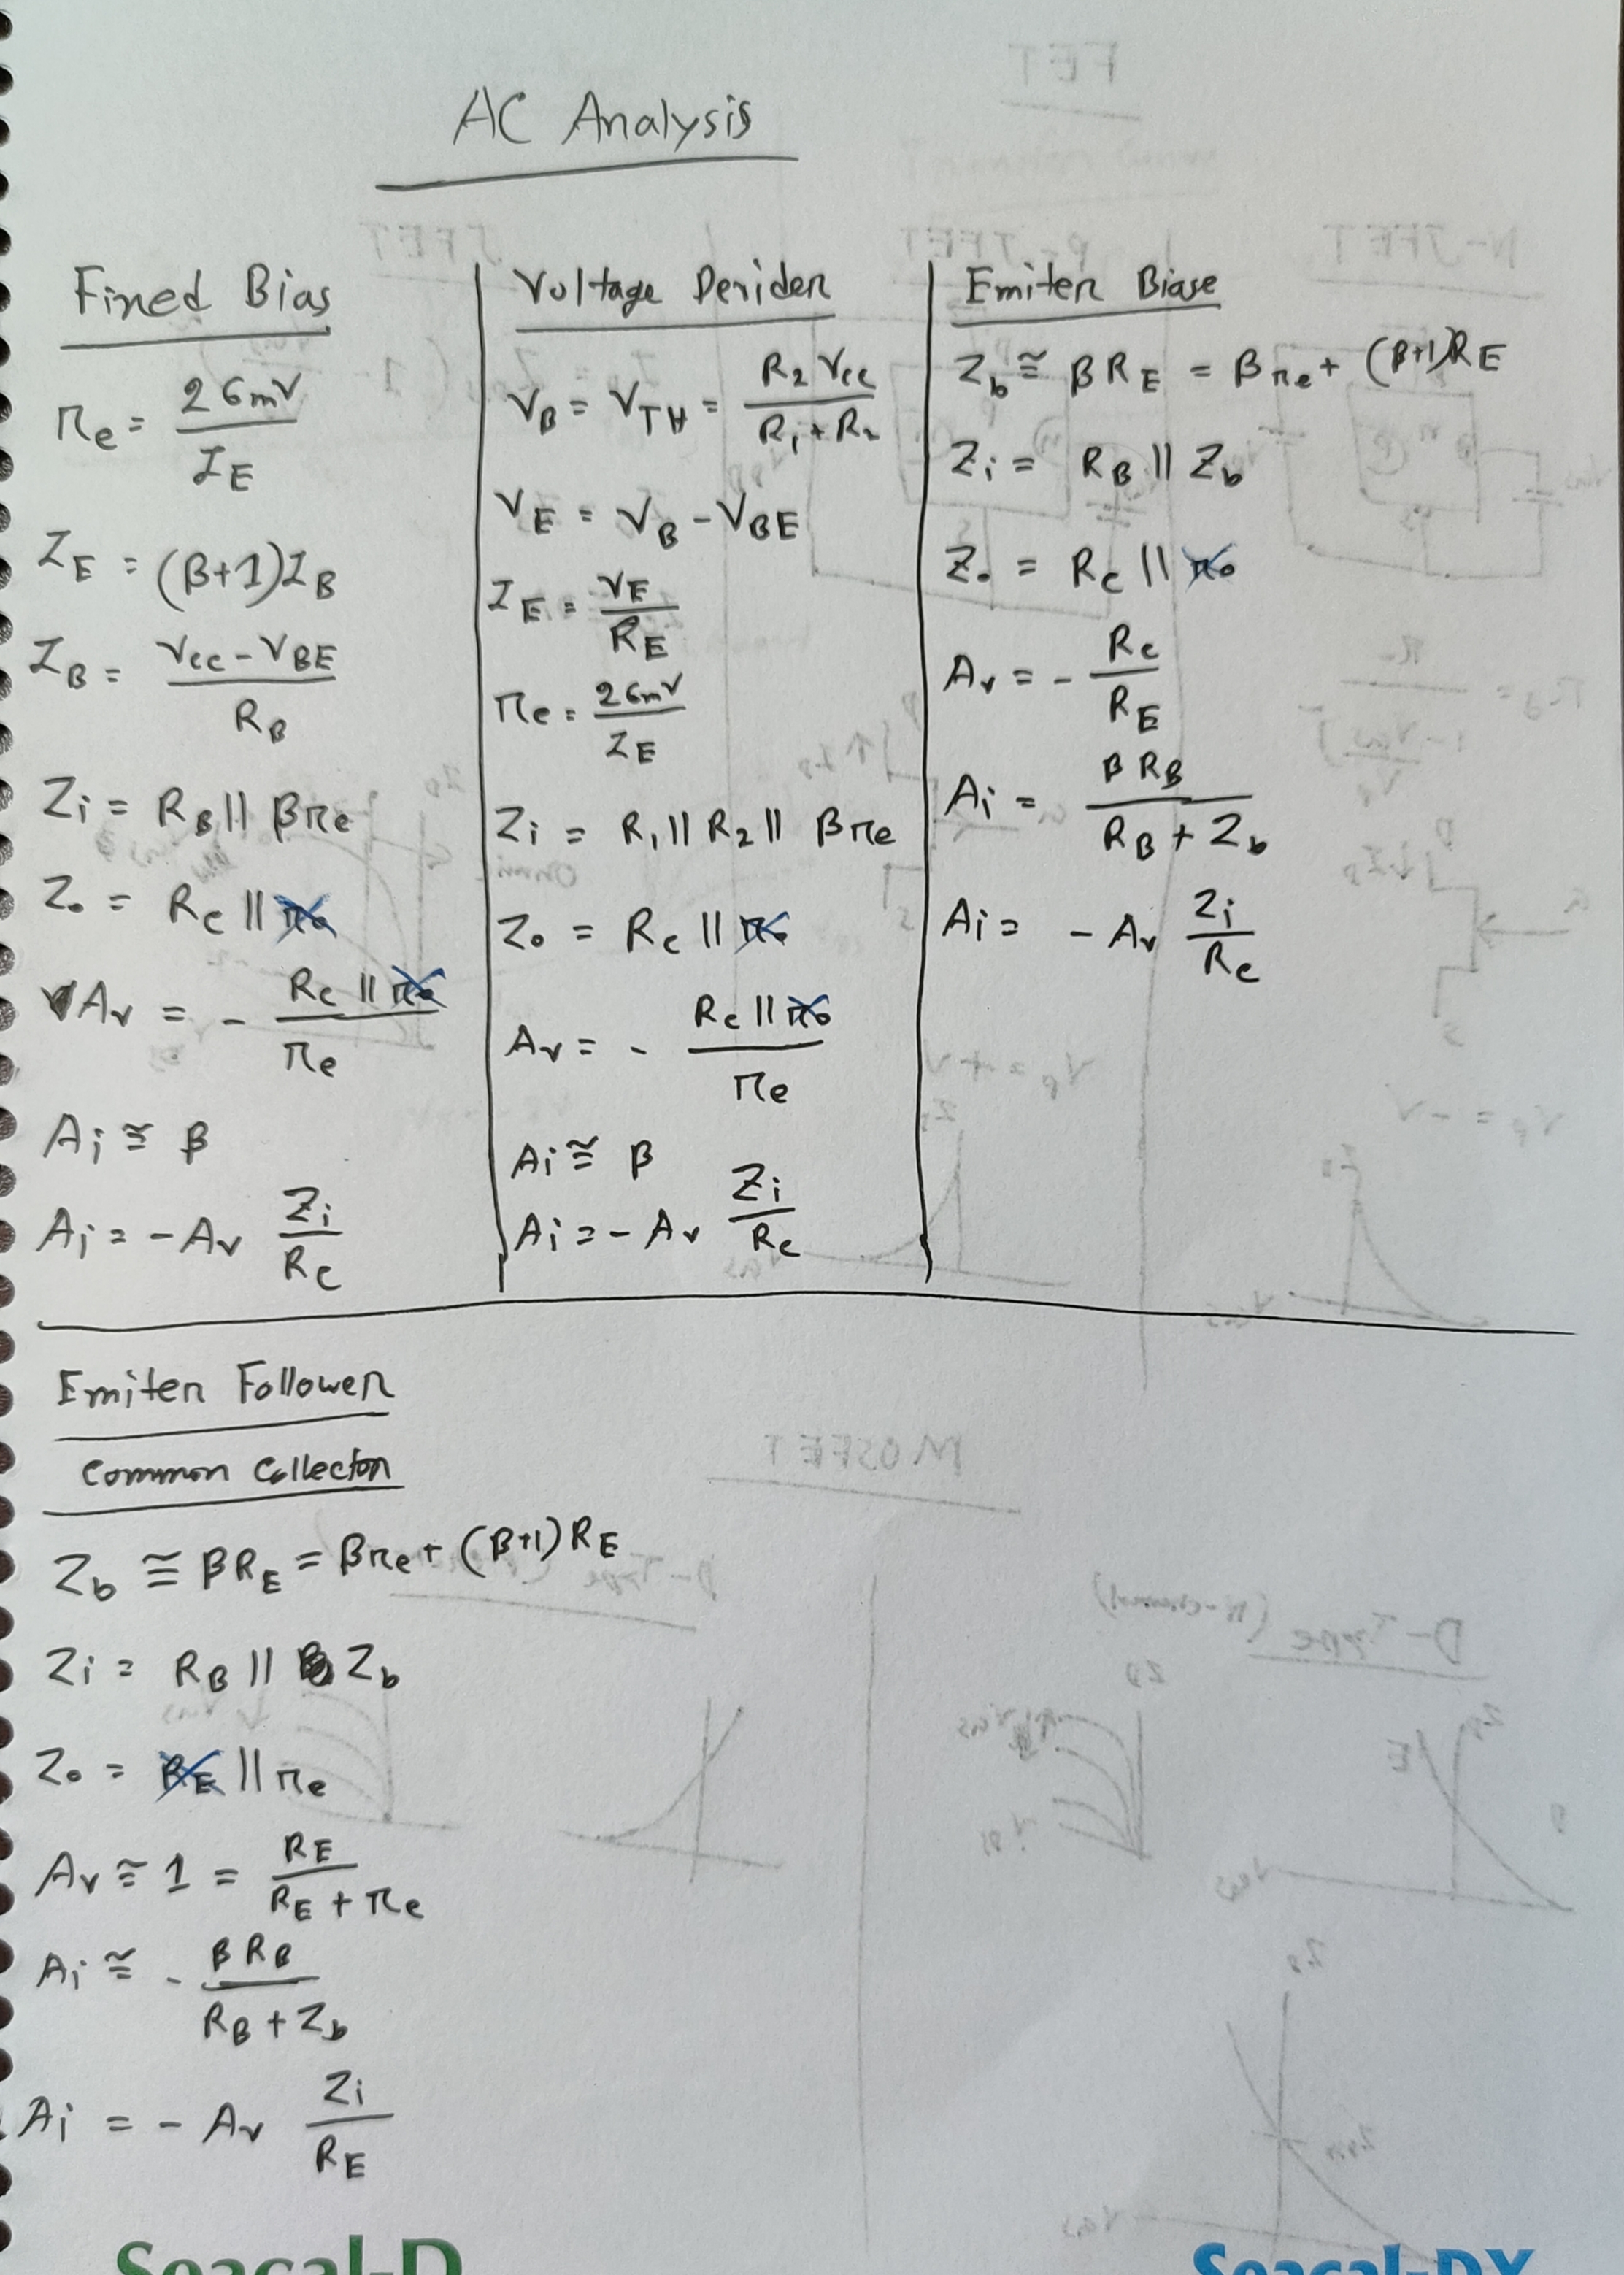 AC Analysis
Fixed Bias
re = 26mV / IE
IE = (β+1)IB
IB = VCC - VBE / RB
Zi = RB || βre
Zo = RC || ro
Av = - RC || ro / re
Ai ≅ β
Ai = - Av Zi / RC
Voltage Derider
VB = VTH = R2 VCC / R1 + R2
VE = VB - VBE
IE = VE / RE
re = 26mV / IE
Zi = R1 || R2 || βre
Zo = RC || ro
Av = - RC || ro / re
Ai ≅ β
Ai = - Av Zi / RC
Emiter Biase
Zb ≅ βRE = βre + (β+1)RE
Zi = RB || Zb
Zo = RC || ro
Av = - RC / RE
Ai = βRB / RB + Zb
Ai = - Av Zi / RC
Emiter Follower
Common Collector
Zb ≅ βRE = βre + (β+1)RE
Zi = RB || Zb
Zo = RE || re
Av ≅ 1 = RE / RE + re
Ai ≅ - βRB / RB + Zb
Ai = - Av Zi / RE
Seacal-D
Seacal-DX